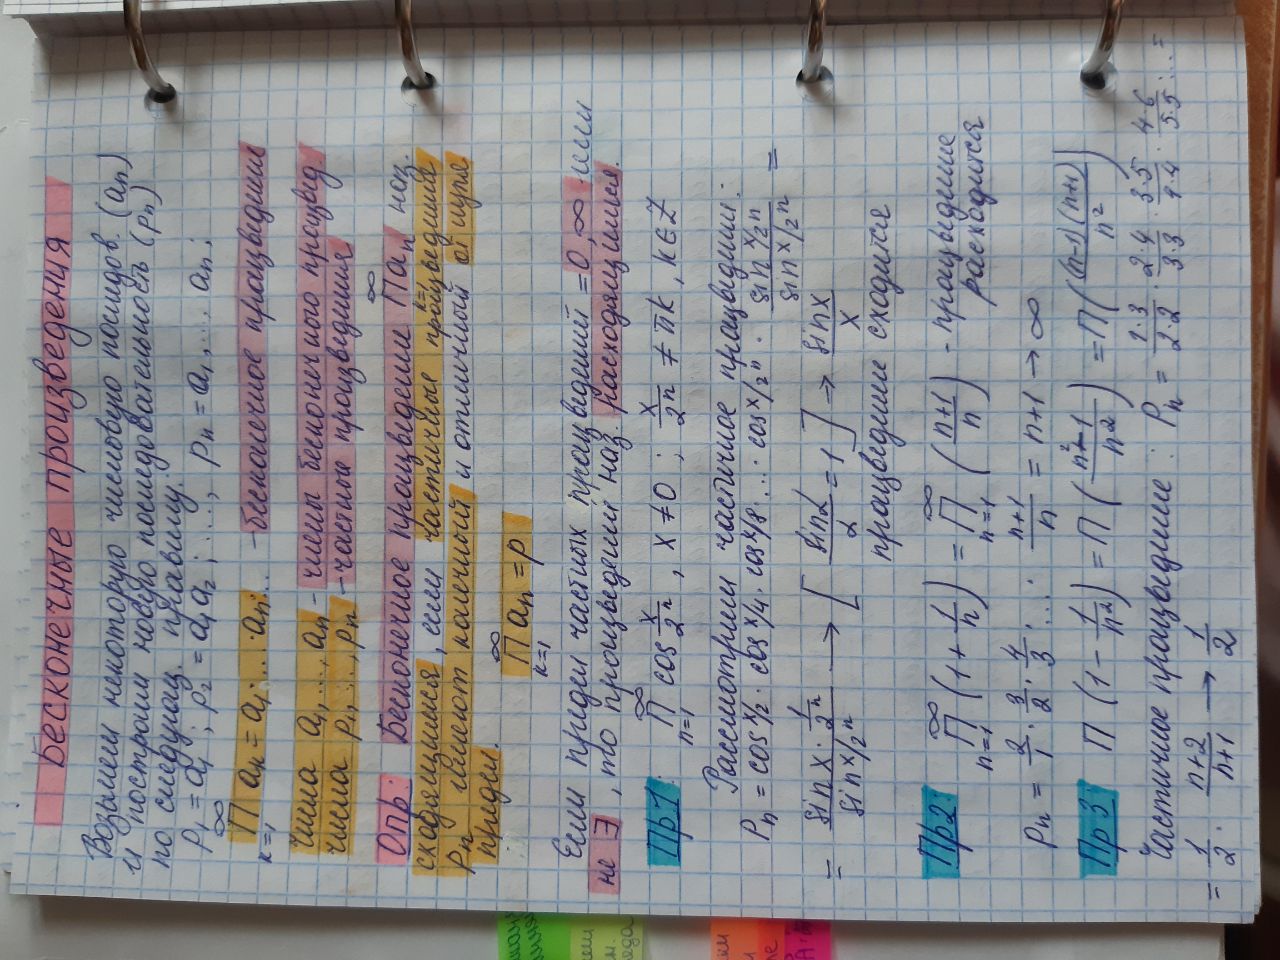 Бесконечные произведения
Возьмем некоторую числовую последов. (aₙ)
и построим новую последовательность (pₙ)
по следующ. правилу:
p₁ = a₁ ; p₂ = a₁a₂ ; ..., pₙ = a₁, ..., aₙ;
∞
∏ aₖ = a₁·...·aₙ·... - бесконечное произведение
к=1
числа a₁, ..., aₙ - члены бесконечного произвед.
числа p₁, ..., pₙ - частные произведения
∞
Опр: Бесконечное произведение ∏ aₙ наз.
к=1
сходящимся, если частичные произведения
pₙ имеют конечный и отличный от нуля
предел.
∞
∏ aₙ = p
к=1
Если предел частных произведений = 0, ∞ или
не ∃, то произведений наз. расходящимися.
∞
Пр.1: ∏ cos x/2ⁿ , x ≠ 0 ; x/2ⁿ ≠ πk , k ∈ Z
n=1
Рассмотрим частичное произведение:
Pₙ = cos x/2 · cos x/4 · cos x/8 · ... · cos x/2ⁿ · sin x/2ⁿ / sin x/2ⁿ =
= sin x · 1/2ⁿ / sin x/2ⁿ → [ sin α / α = 1 ] → sin x / x
произведение сходится
∞ ∞
Пр2: ∏ (1 + 1/n) = ∏ (n+1 / n) - произведение
n=1 n=1 расходится
pₙ = 2/1 · 3/2 · 4/3 · ... · n+1 / n = n+1 → ∞
Пр 3: ∏ (1 - 1/n²) = ∏ (n²-1 / n²) = ∏ ((n-1)(n+1) / n²)
Частичное произведение : Pₙ = 1·3/2·2 · 2·4/3·3 · 3·5/4·4 · 4·6/5·5 · ... =
= 1/2 · n+2 / n+1 → 1/2